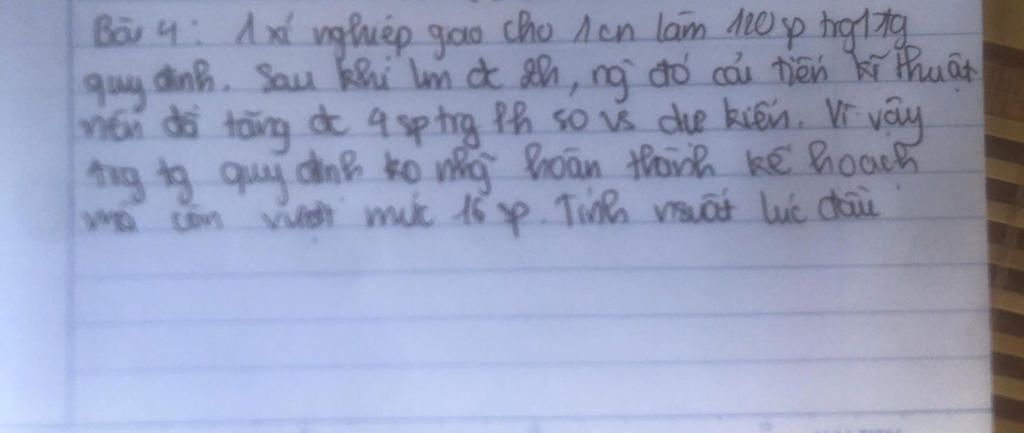 Bài 4: 1 xí nghiệp giao cho 1cn làm 120sp trg 1 tg
quy định. Sau khi lm đc 2h, ng đó cải tiến kĩ thuật
nên đã tăng đc 4 sp trg 1h so vs dự kiến. Vì vậy
trg tg quy định ko nhg hoàn thành kế hoạch
mà còn vượt mức 16 sp. Tính nsuất lúc đầu